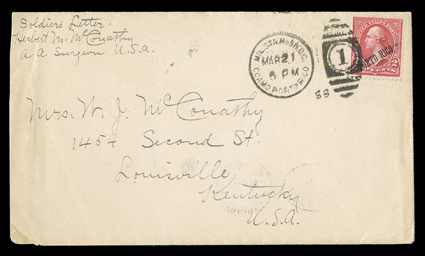 Soldiers Letter.
Herbert M. McConathy
A A Surgeon U.S.A.
MIL. STA. No.
MAR 21
5 PM
COAMO PORTO RICO
1
PORTO RICO
2
Mrs. W. J. McConathy
1454 Second St.
Louisville
Kentucky
U.S.A.